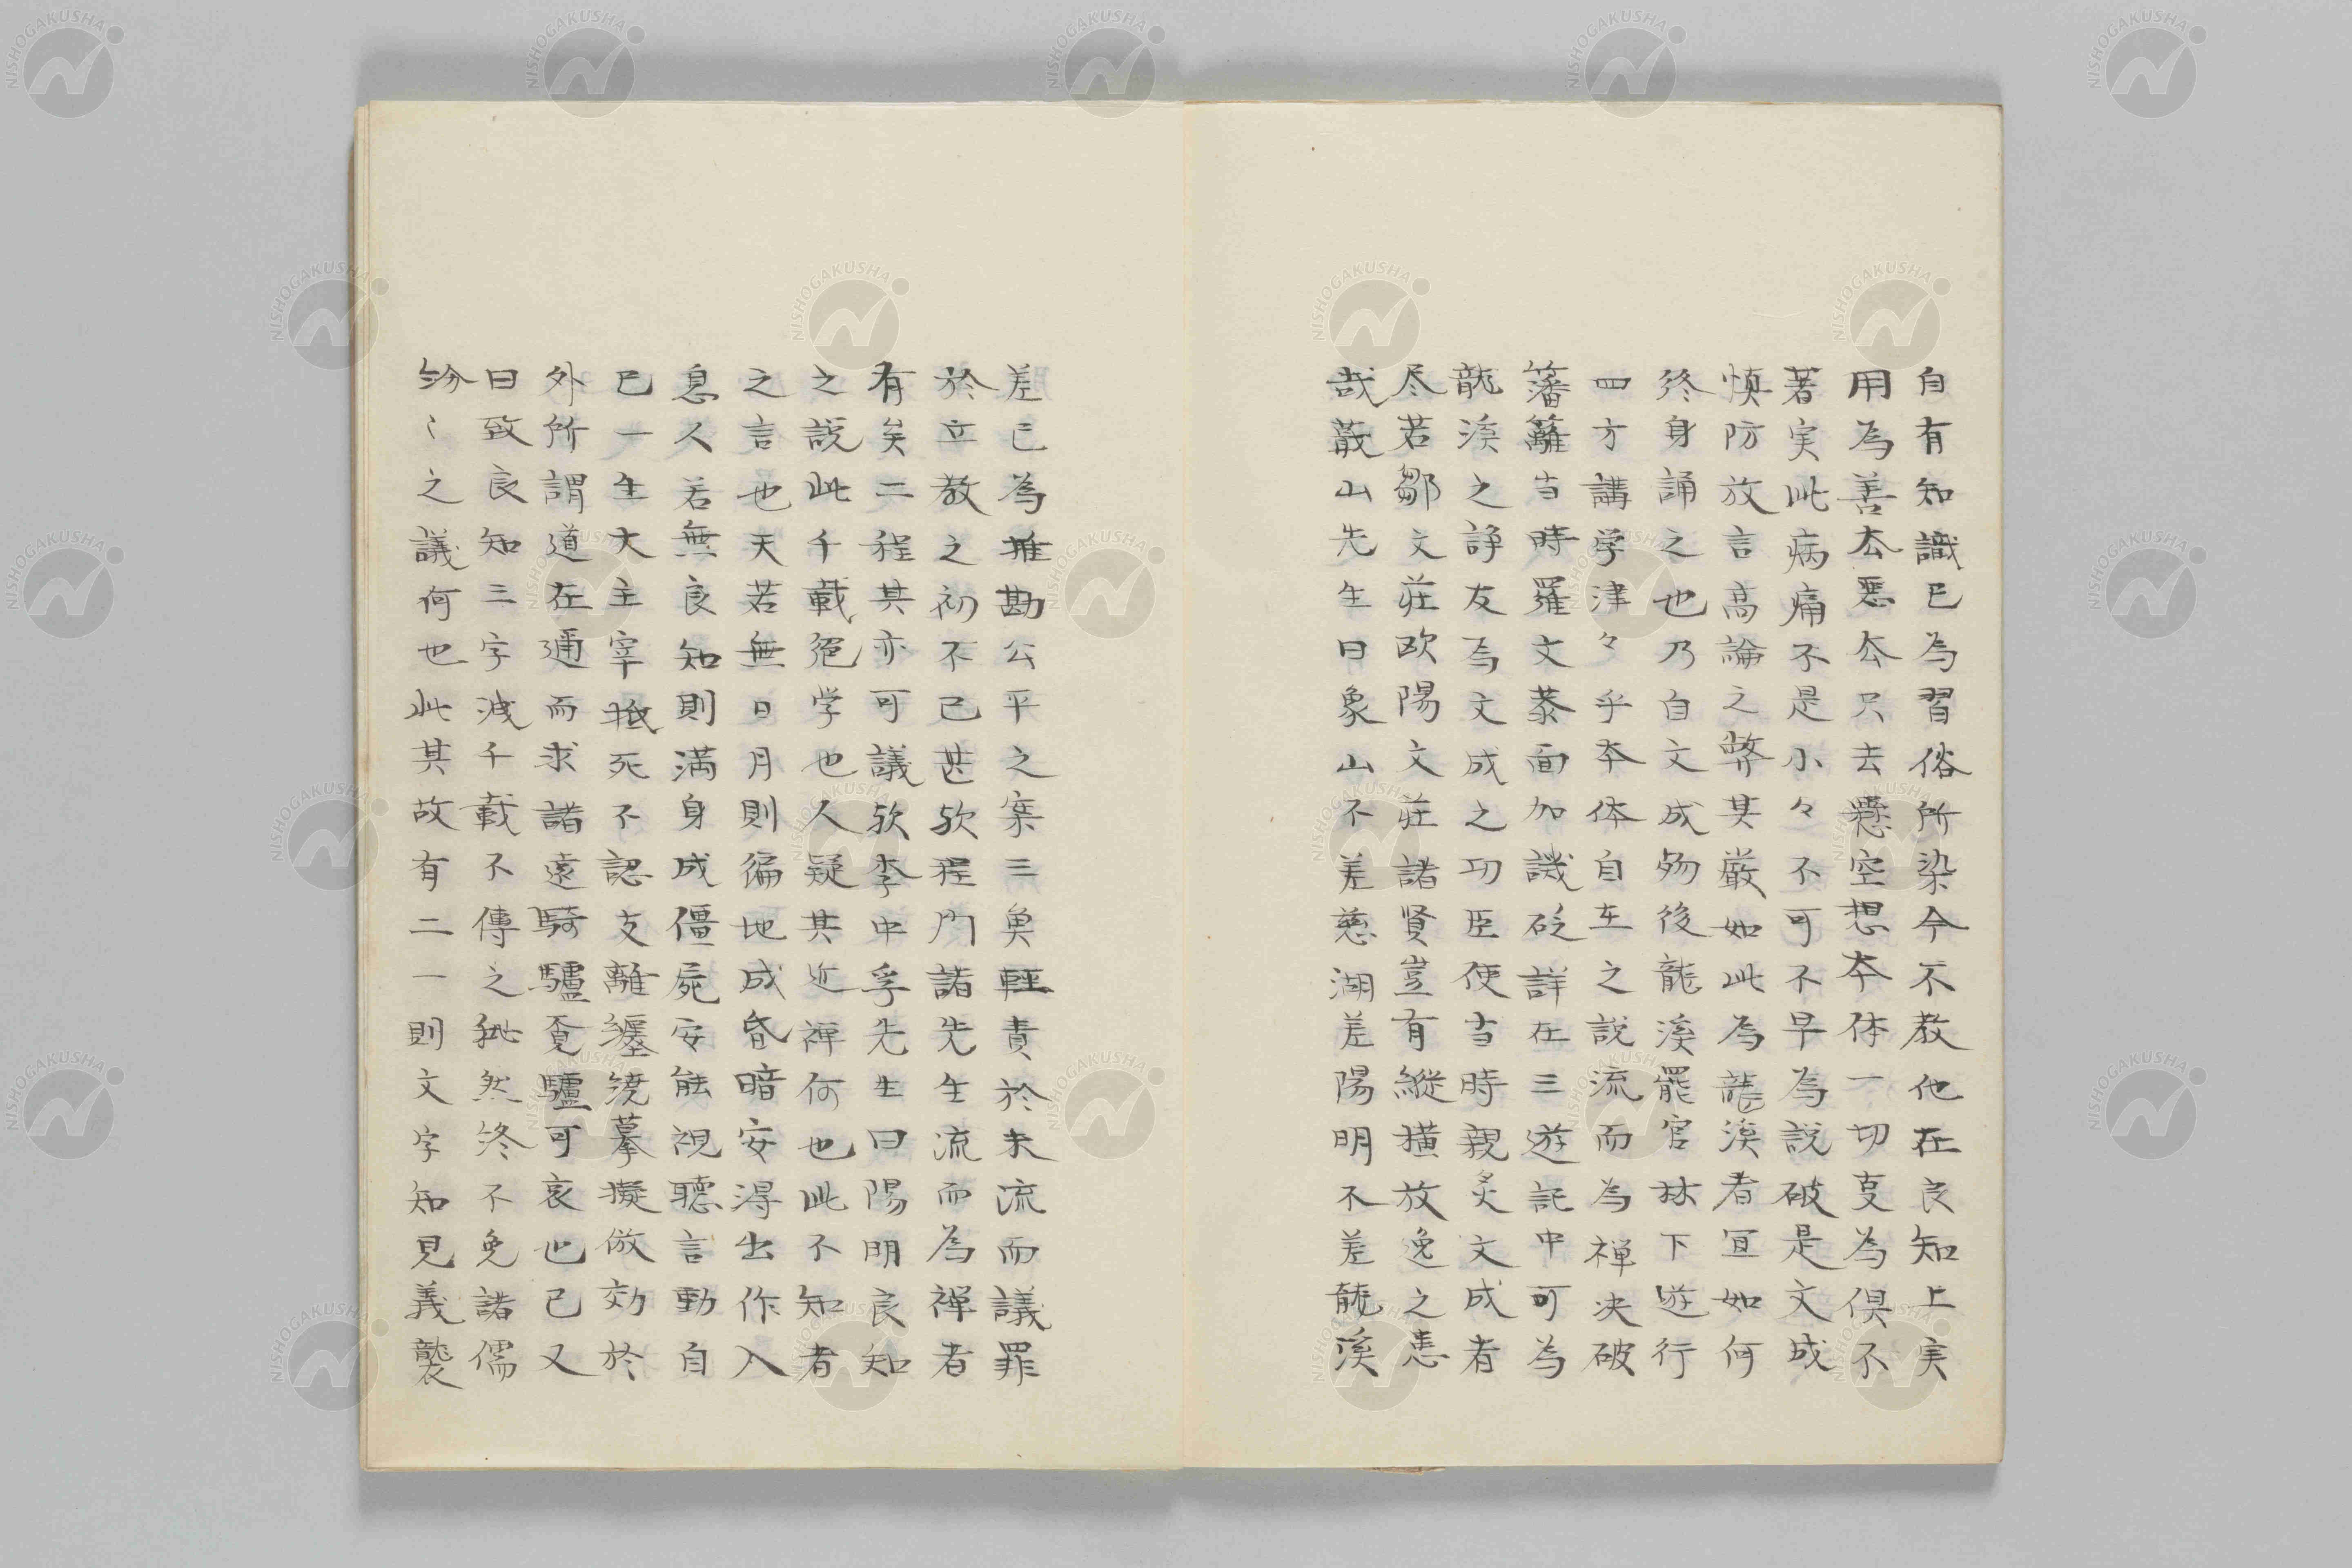 自有知識已為習俗所染今不教他在良知上実
用為善去悪去只去懸空想本体一切事為倶不
著実此病痛不是小々不可不早為説破是文成
慎防放言高論之弊其厳如此為龍溪者宜如何
終身誦之也乃自文成歿後龍溪罷官林下遊行
四方講学津々乎本体自在之説流而為禅决破
藩籬当時羅文恭面加譏砭詳在三遊記中可為
龍溪之諍友為文成之功臣使当時親炙文成者
尽若鄒文莊欧陽文莊諸賢豈有縦横放逸之患
哉蕺山先生曰象山不差慈湖差陽明不差龍溪
差已為推勘公平之案三魚軽責於末流而議罪
於立教之初不已甚欤程門諸先生流而為禅者
有矣二程其亦可議欤李中孚先生曰陽明良知
之説此千載絶学也人疑其近禅何也此不知者
之言也天若無日月則徧地成昏暗安得出作入
息人若無良知則満身成僵屍安能視聽言動自
已一生大主宰抵死不認支離纒繞摹擬倣效於
外所謂道在邇而求諸遠騎驢覓驢可哀也已又
曰致良知三字洩千載不傳之秘然終不免諸儒
紛〻之議何也此其故有二一則文字知見義襲